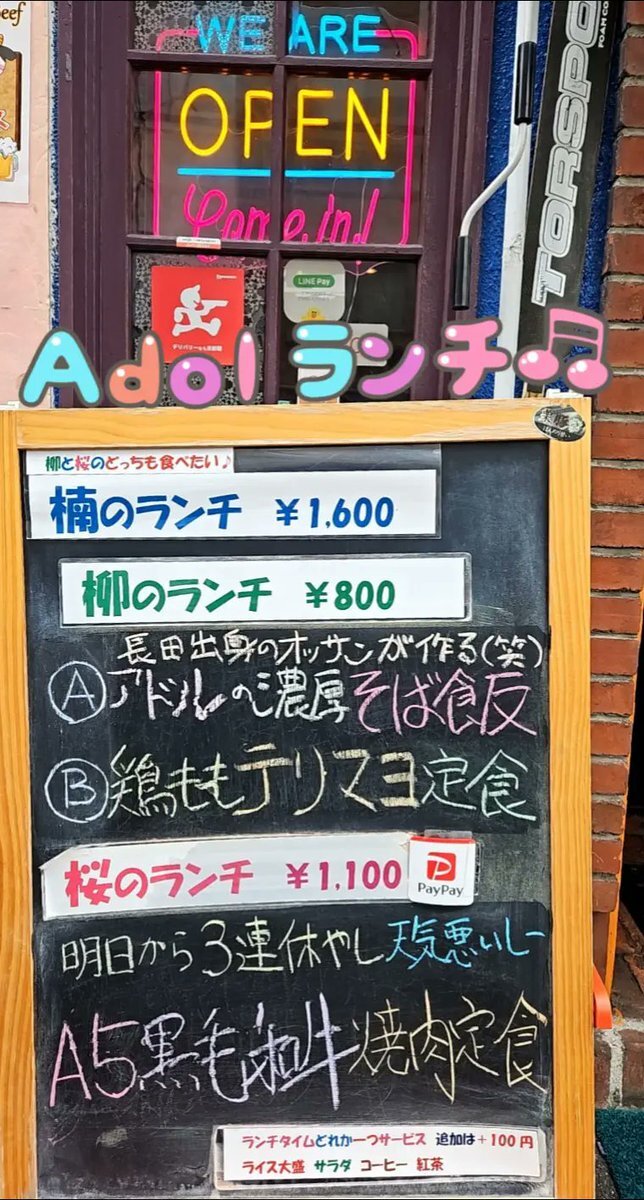 eef
ス
WE ARE
OPEN
Come in!
TORSPO
FOAM CO
LINE Pay
Adol ランチ♫
柳と桜のどっちも食べたい♪
楠のランチ ¥1,600
柳のランチ ¥800
長田出身のオッサンが作る(笑)
Ⓐアドルの濃厚そば食反
Ⓑ鶏ももテリマヨ定食
桜のランチ ¥1,100
PayPay
明日から3連休やし 天気悪いしー
A5黒毛和牛焼肉定食
ランチタイムどれか一つサービス 追加は+100円
ライス大盛 サラダ コーヒー 紅茶